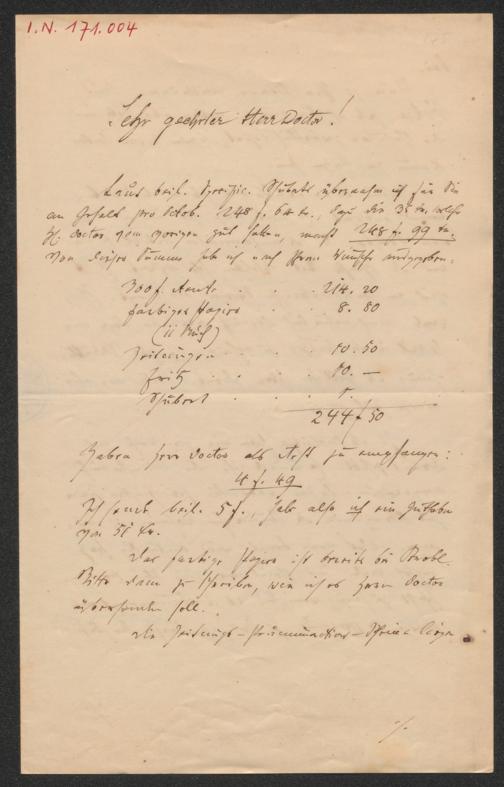 I.N. 171.004
Sehr geehrter Herr Doctor!
Laut beil. Specific. Schuberts übernahm ich für Sie
an Gehalt pro Octob. 248 f. 64 kr., dazu die 35 kr, welche
H. Doctor vom vorigen gut hatten, macht 248 f. 99 kr.
Von dieser Summe habe ich nach Ihrem Wunsche ausgegeben:
300 f. Rente . . . 214. 20
farbiges Papier . . . 8. 80
(11 Buch)
Zeitungen . . . 10. 50
Fritz . . . 10. —
Schubert . . . 1.
244 f 50
Haben Herr Doctor als Rest zu empfangen:
4 f. 49
Ich sende beil. 5 f., habe also ich ein Guthaben
von 51 kr.
Das farbige Papier ist bereits bei
Bitte dann zu schreiben, wie ich es Herrn Doctor
übersenden soll.
Die Zeitungs-Pränumeration-Scheine liegen
./.